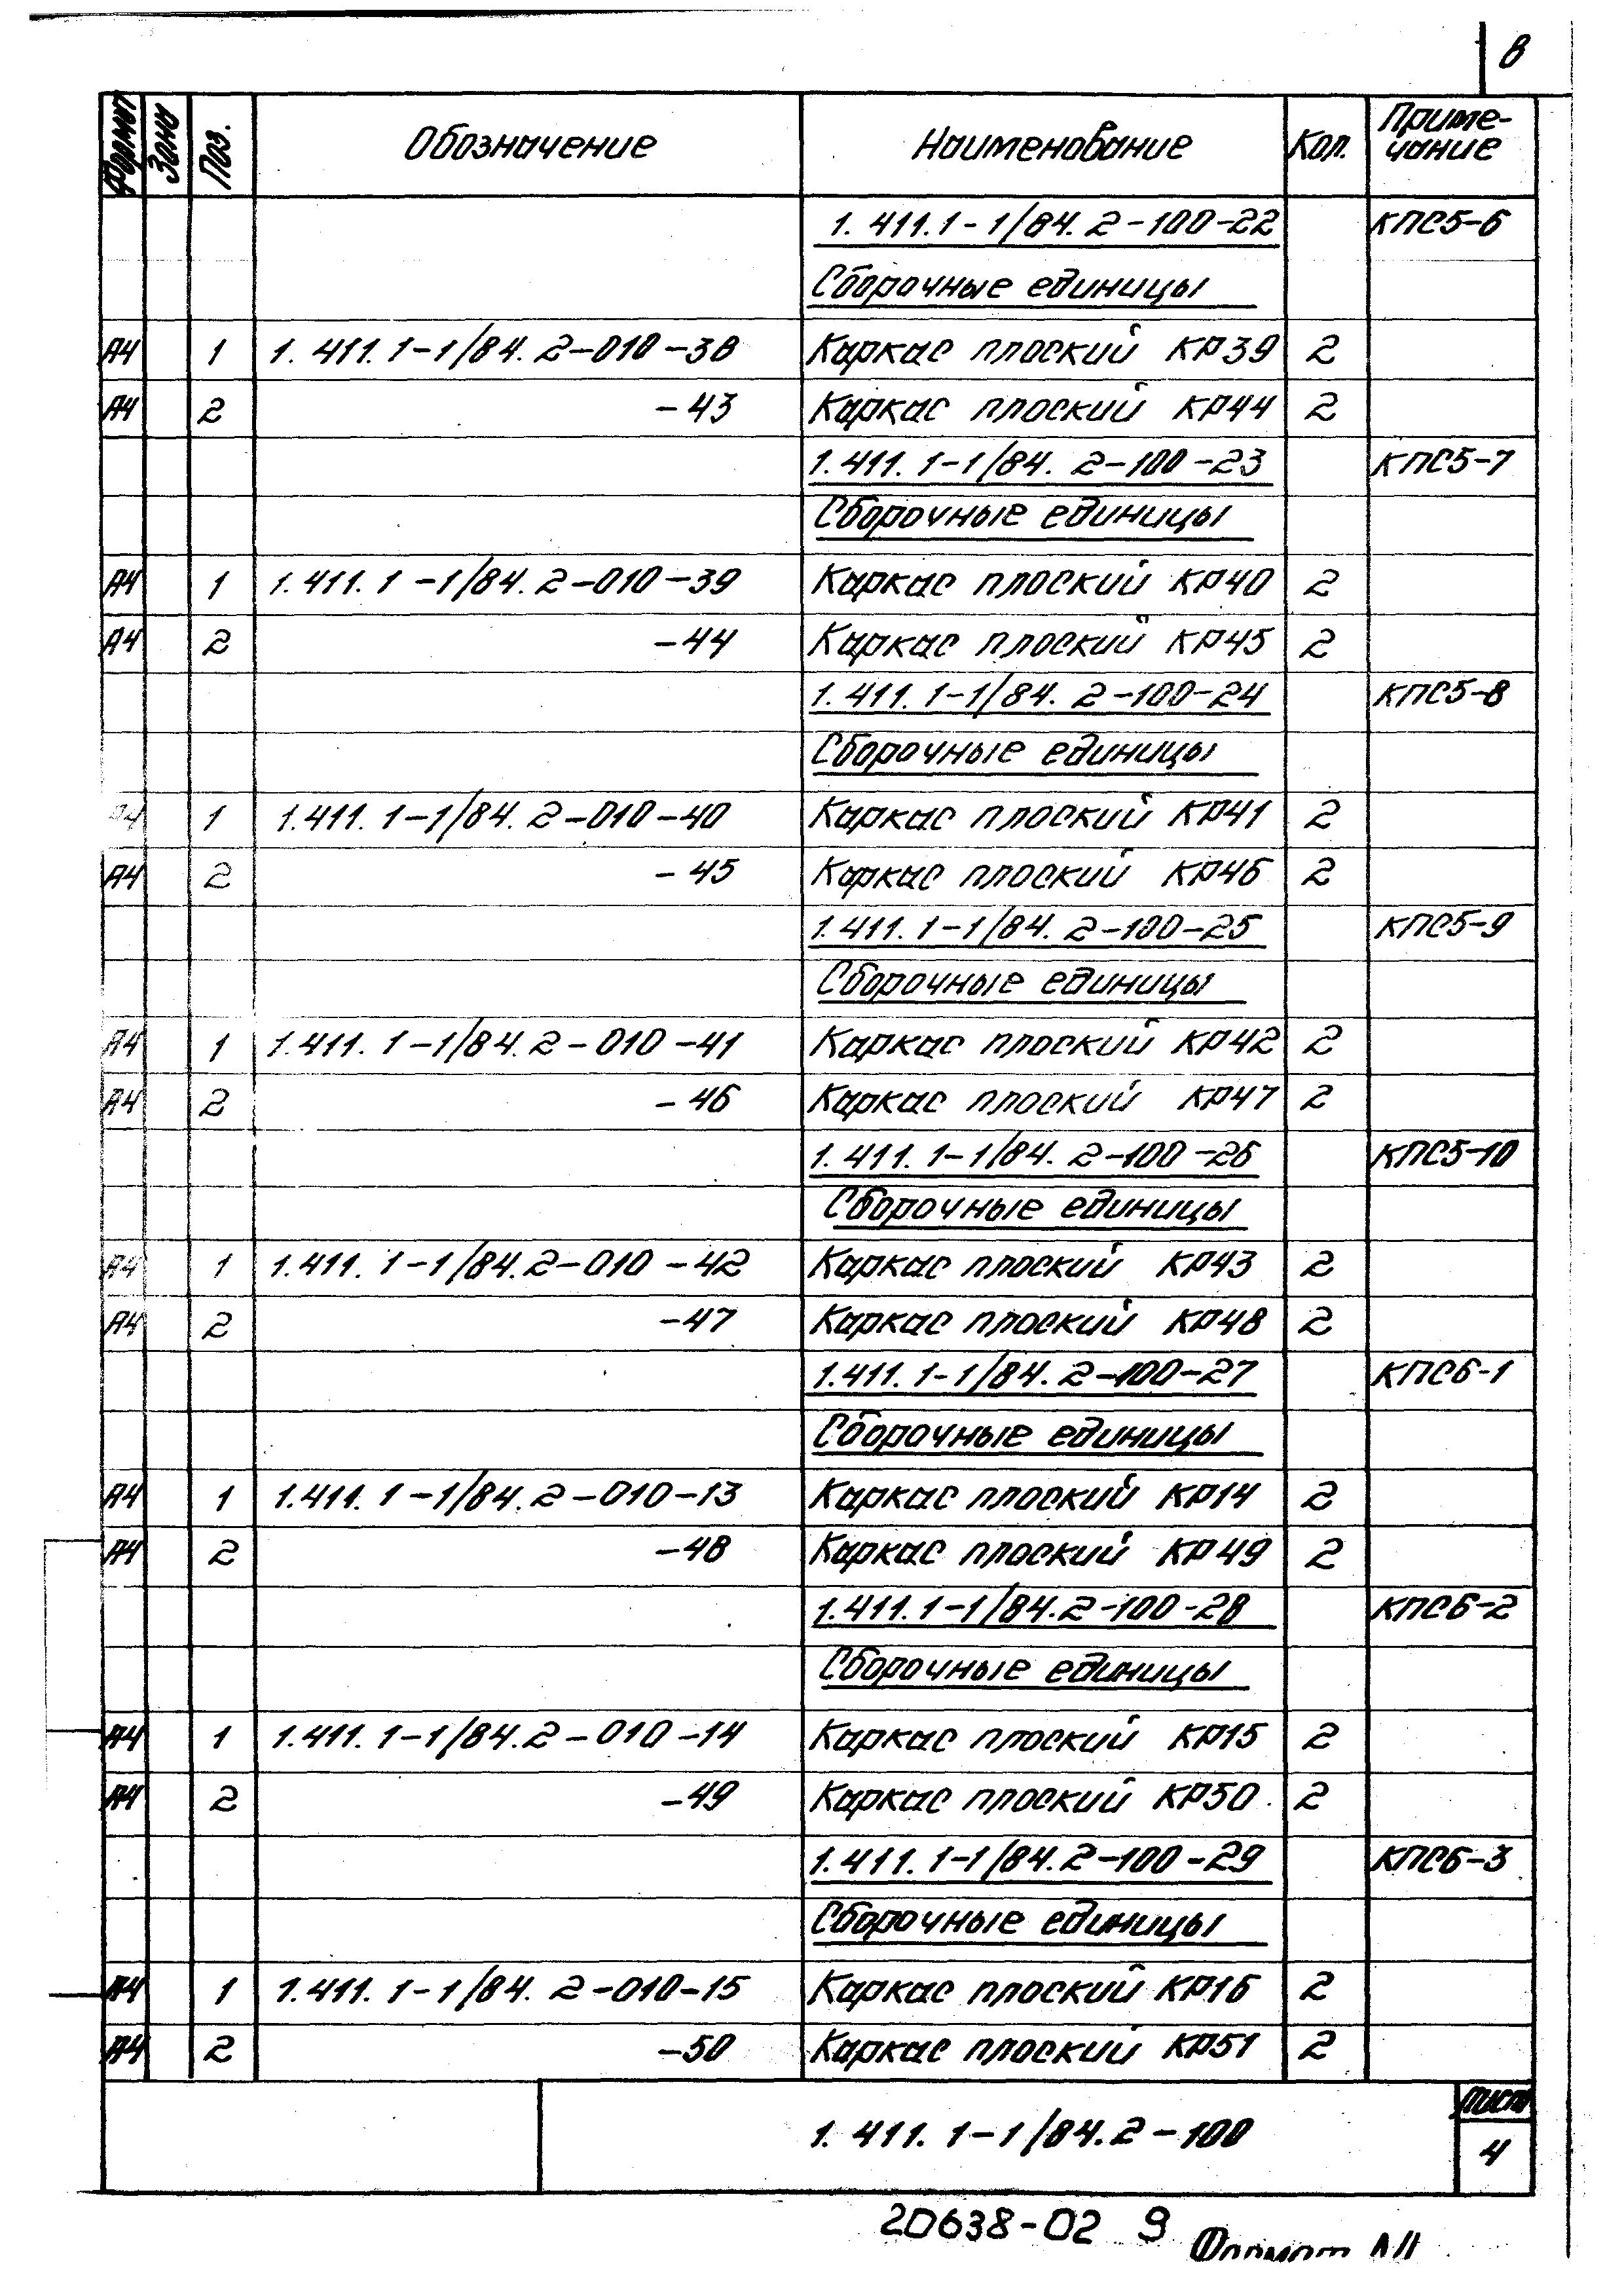 8
Формат Зона Поз. Обозначение Наименование Кол. Приме-
чание
1.411.1-1/84.2-100-22 КПС5-6
Сборочные единицы
А4 1 1.411.1-1/84.2-010-38 Каркас плоский КР39 2
А4 2 -43 Каркас плоский КР44 2
1.411.1-1/84.2-100-23 КПС5-7
Сборочные единицы
А4 1 1.411.1-1/84.2-010-39 Каркас плоский КР40 2
А4 2 -44 Каркас плоский КР45 2
1.411.1-1/84.2-100-24 КПС5-8
Сборочные единицы
А4 1 1.411.1-1/84.2-010-40 Каркас плоский КР41 2
А4 2 -45 Каркас плоский КР46 2
1.411.1-1/84.2-100-25 КПС5-9
Сборочные единицы
А4 1 1.411.1-1/84.2-010-41 Каркас плоский КР42 2
А4 2 -46 Каркас плоский КР47 2
1.411.1-1/84.2-100-26 КПС5-10
Сборочные единицы
А4 1 1.411.1-1/84.2-010-42 Каркас плоский КР43 2
А4 2 -47 Каркас плоский КР48 2
1.411.1-1/84.2-100-27 КПС6-1
Сборочные единицы
А4 1 1.411.1-1/84.2-010-13 Каркас плоский КР14 2
А4 2 -48 Каркас плоский КР49 2
1.411.1-1/84.2-100-28 КПС6-2
Сборочные единицы
А4 1 1.411.1-1/84.2-010-14 Каркас плоский КР15 2
А4 2 -49 Каркас плоский КР50 2
1.411.1-1/84.2-100-29 КПС6-3
Сборочные единицы
А4 1 1.411.1-1/84.2-010-15 Каркас плоский КР16 2
А4 2 -50 Каркас плоский КР51 2
1.411.1-1/84.2-100
Лист
4
20638-02 9
Формат